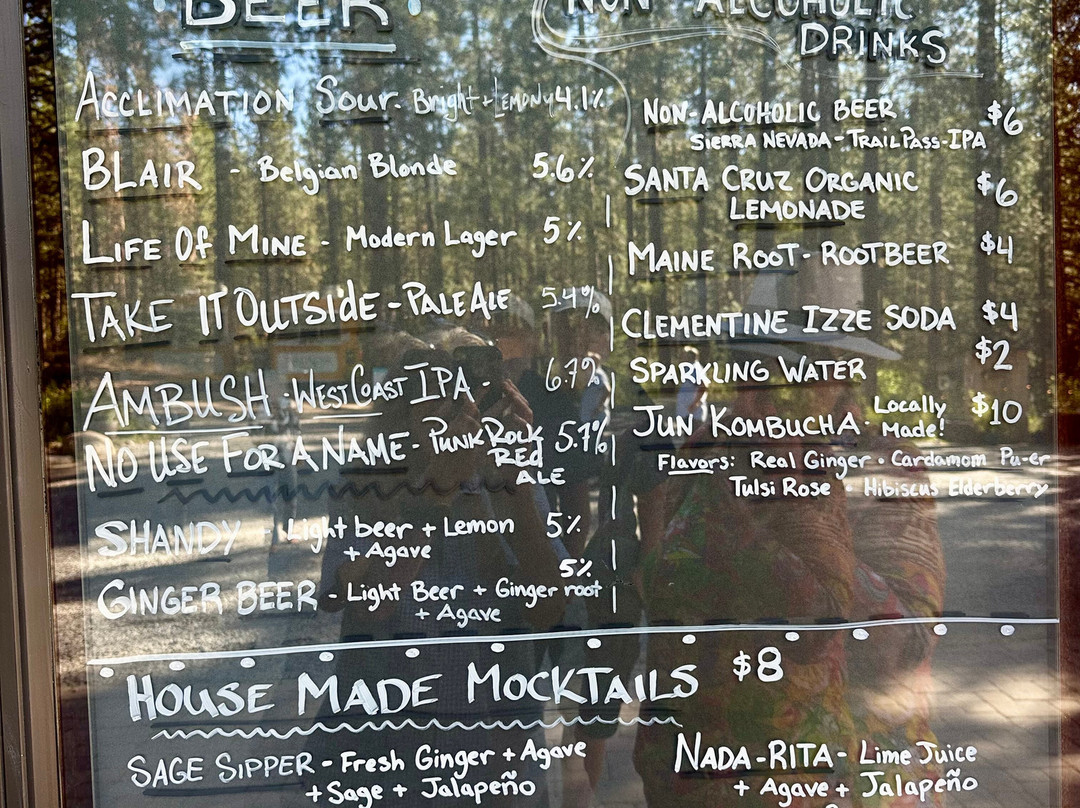 BEER
ACCLIMATION SOUR - Bright + LEMONY 4.1%
BLAIR - Belgian Blonde 5.6%
LIFE OF MINE - Modern Lager 5%
TAKE IT OUTSIDE - PALE ALE 5.4%
AMBUSH - WEST COAST IPA - 6.7%
NO USE FOR A NAME - PUNK ROCK 5.7%
RED
ALE
SHANDY - Light beer + Lemon 5%
+ Agave
5%
GINGER BEER - Light Beer + Ginger root
+ Agave
NON-ALCOHOLIC
DRINKS
NON-ALCOHOLIC BEER $6
SIERRA NEVADA - TRAIL PASS - IPA
SANTA CRUZ ORGANIC $6
LEMONADE
MAINE ROOT - ROOTBEER $4
CLEMENTINE IZZE SODA $4
SPARKLING WATER $2
JUN KOMBUCHA - Locally Made! $10
Flavors: Real Ginger • Cardamom Pu-er
Tulsi Rose Hibiscus Elderberry
HOUSE MADE MOCKTAILS $8
SAGE SIPPER - Fresh Ginger + Agave
+ Sage + Jalapeño
NADA-RITA - Lime Juice
+ Agave + Jalapeño